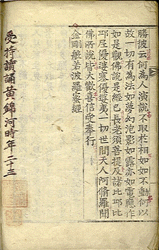 勝彼云何為人演說不取於相如如不動何以
故一切有為法如夢幻泡影如露亦如電應作
如是觀佛說是經已長老須菩提及諸比丘比
丘尼優婆塞優婆夷一切世間天人阿脩羅聞
佛所說皆大歡喜信受奉行
金剛般若波羅蜜經
受持讀誦黃錦河時年二十三